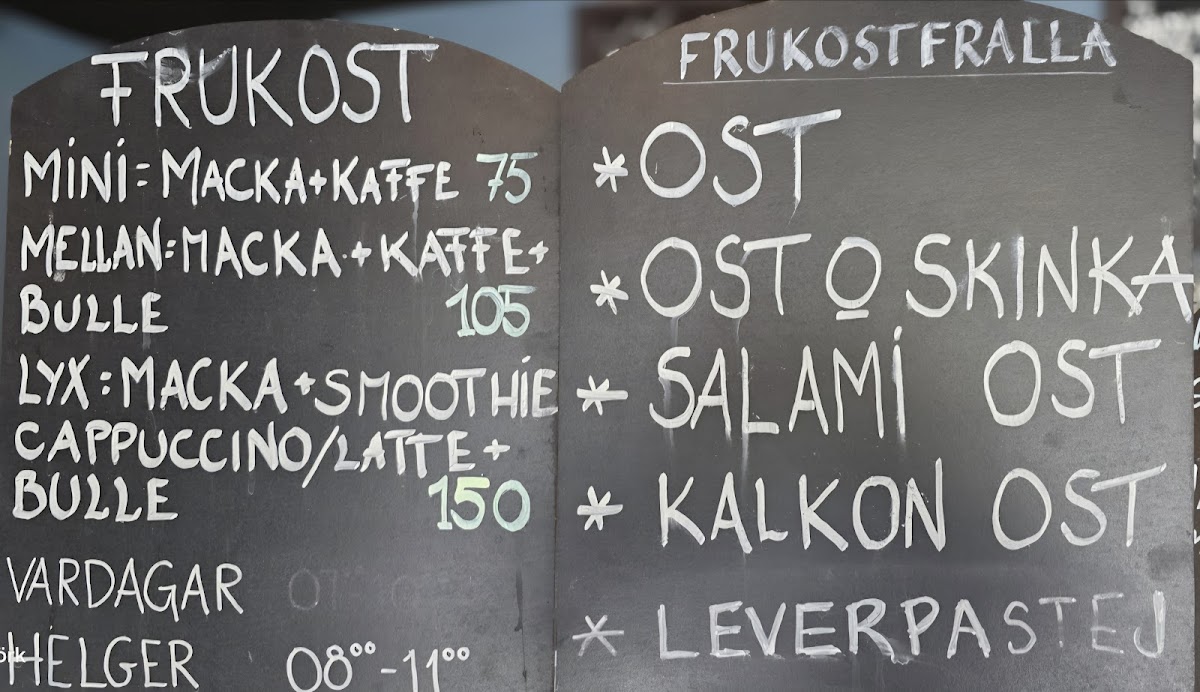 FRUKOST
MINI= MACKA+KAFFE 75
MELLAN=MACKA+KAFFE+
BULLE 105
LYX:MACKA+SMOOTHIE
CAPPUCCINO/LATTE+
BULLE 150
VARDAGAR
HELGER 08⁰⁰-11⁰⁰
FRUKOSTFRALLA
* OST
* OST O SKINKA
* SALAMI OST
* KALKON OST
* LEVERPASTEJ